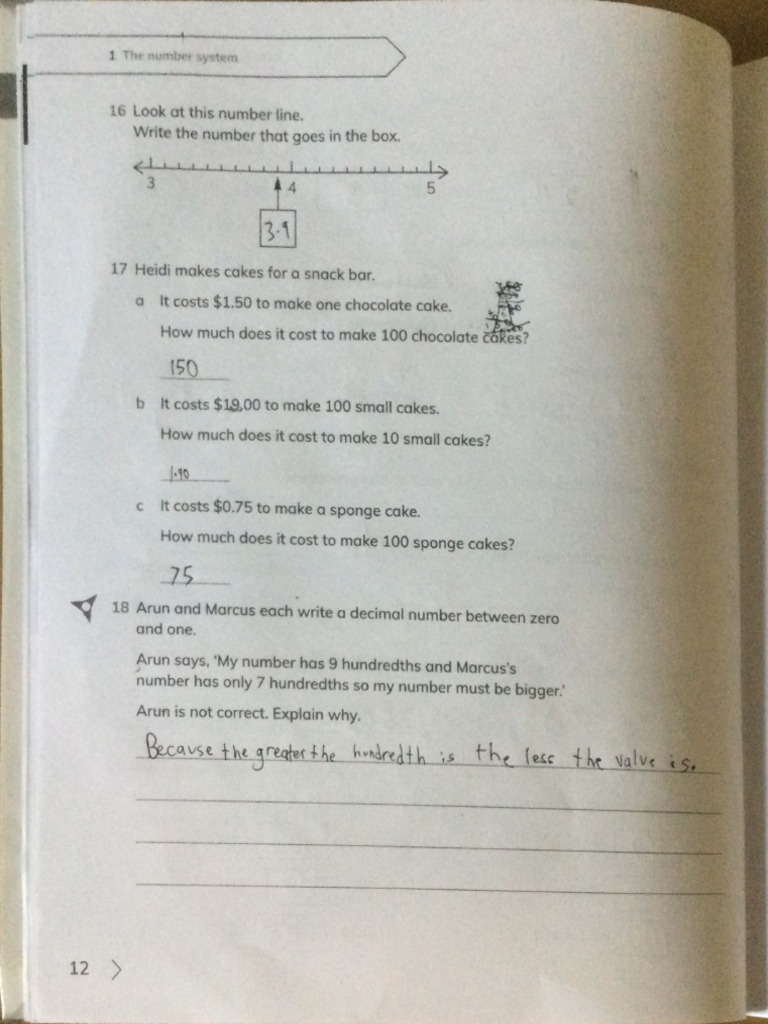 1 The number system
16 Look at this number line.
Write the number that goes in the box.
3 4 5
3.9
17 Heidi makes cakes for a snack bar.
a It costs $1.50 to make one chocolate cake.
How much does it cost to make 100 chocolate cakes?
150
b It costs $19,00 to make 100 small cakes.
How much does it cost to make 10 small cakes?
1.90
c It costs $0.75 to make a sponge cake.
How much does it cost to make 100 sponge cakes?
75
18 Arun and Marcus each write a decimal number between zero
and one.
Arun says, 'My number has 9 hundredths and Marcus's
number has only 7 hundredths so my number must be bigger.'
Arun is not correct. Explain why.
Because the greater the hundredth is the less the value is.
12